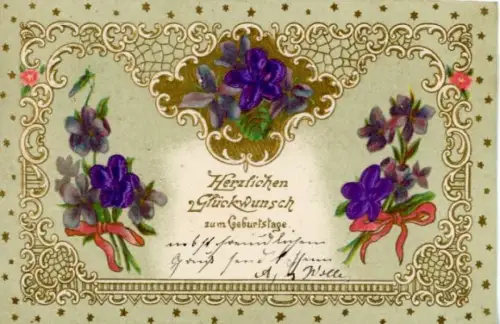 Herzlichen
Glückwunsch
zum Geburtstage
nebst freundlichem
Gruß send
A. Wolli